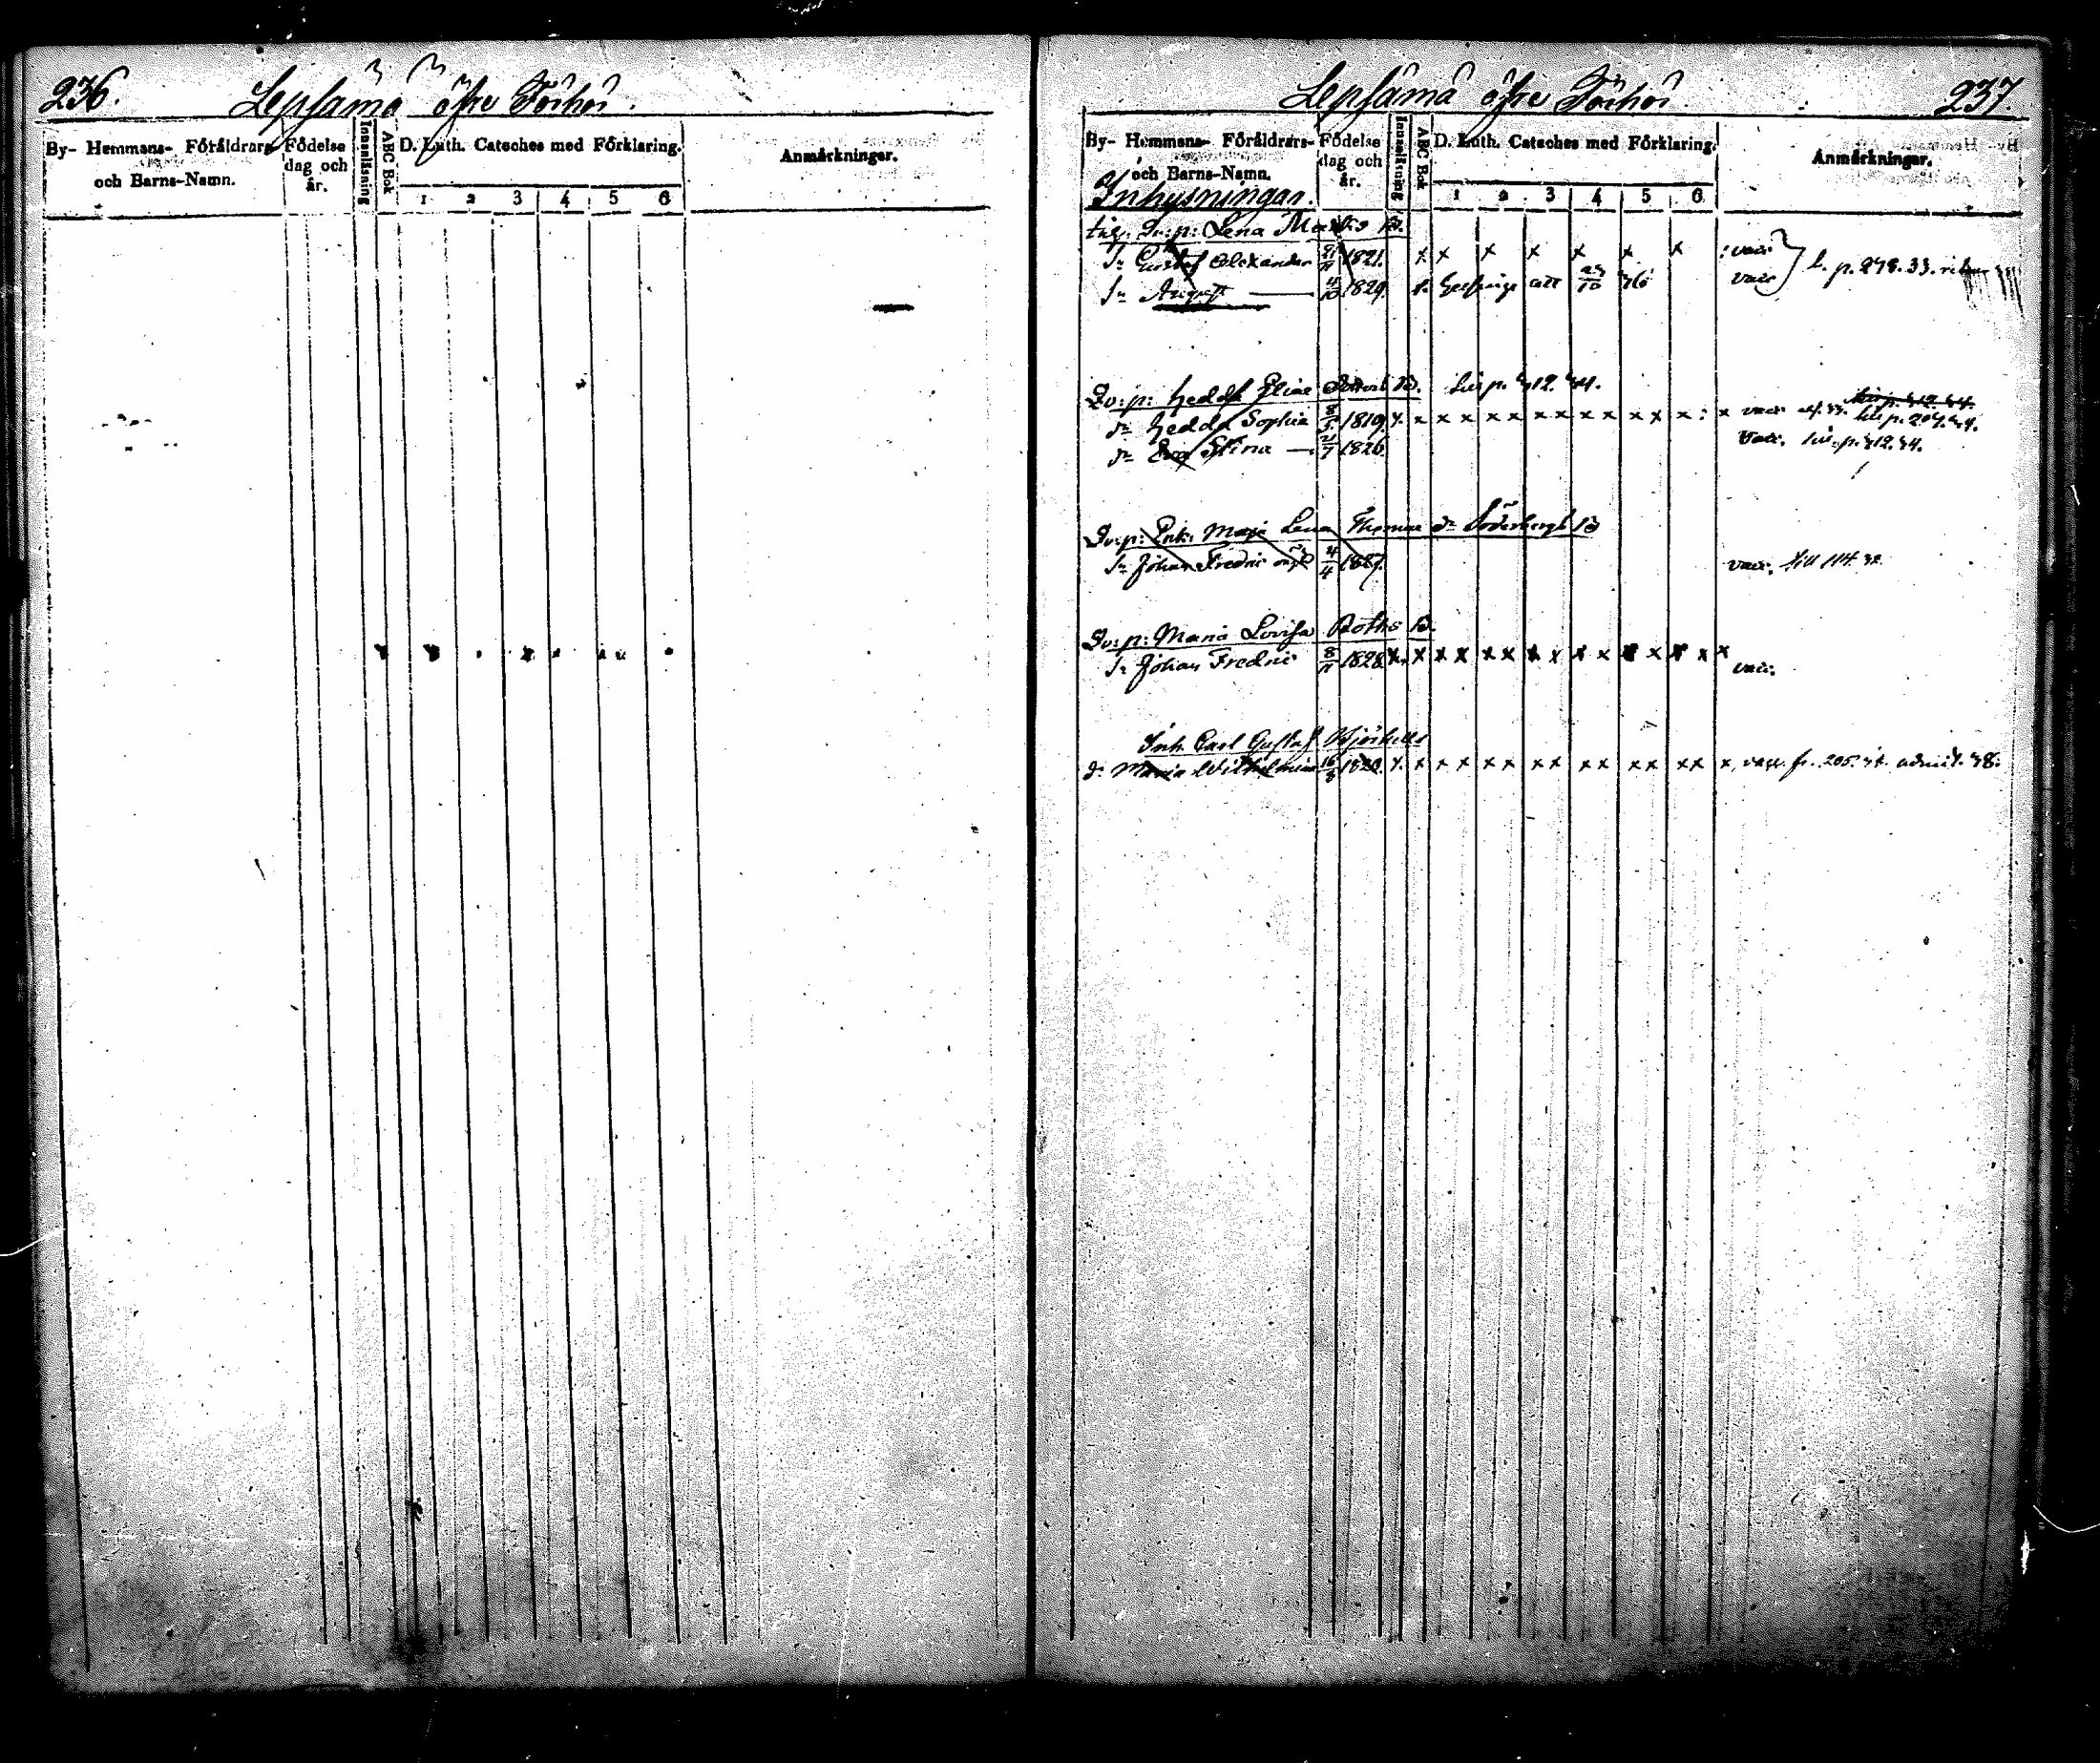 236. Lepsämä öfre Torhoi.
By- Hemmans- Föräldrars- och Barns-Namn.
Födelse dag och år.
Innanläsning
ABC Bok
D. Luth. Cateches med Förklaring.
1 2 3 4 5 6
Anmärkningar.
Lepsämä öfre Torhoi. 237.
By- Hemmans- Föräldrars- och Barns-Namn.
Födelse dag och år.
Innanläsning
ABC Bok
D. Luth. Cateches med Förklaring.
1 2 3 4 5 6
Anmärkningar.
Inhysningar.
Lena B.
Sn Gustaf Alexander 1821. x x x x x x x x vacc
Sn August 1829. 46 vacc p. 278. 33.
Qv: p: Hedda B. p. 412. 44.
dr Hedda Sophia 8/5 1819. x x x x x x x x x x x x x x vacc p. 207. 44.
dr Eva Stina 1826. Vacc. p. 412. 44.
Qv: p: Enk. Maja Lena Thomae dr Söderbergs B
Sn Johan Fredric 4/4 1827. vacc. till 114.
Qv: p: Maria Lovisa Roths B.
Sn Johan Fredric 8/11 1828. x x x x x x x x x x x x x x x vacc.
Inh. Carl Gustaf
dr Maria Wilhelmina 16/3 x x x x x x x x x x x x x x, vacc. fr. 205. admit. 48.